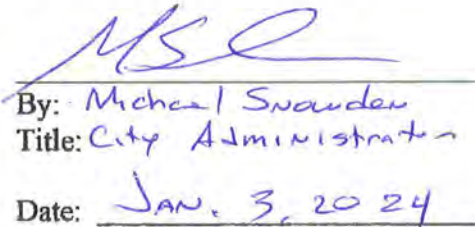 By: Michael Snowden
Title: City Administrator
Date: JAN. 3, 2024